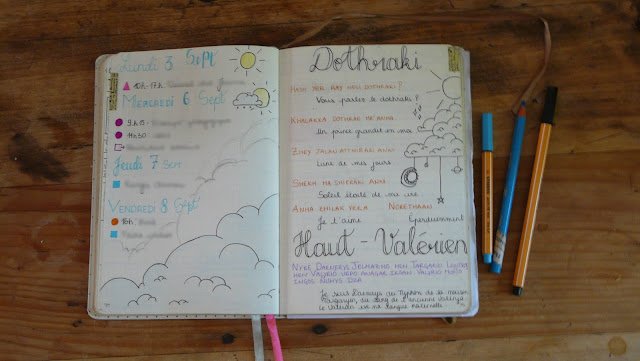 Lundi 3 Sept
16h-17h
Mercredi 6 Sept
9h15
11h30
Jeudi 7 Sept
Vendredi 8 Sept
16h
Dothraki
Vous parlez le dothraki ?
Khalakka dothrae mr'anha
Un prince grandit en moi
Zhey jalan atthirari anni
Lune de mes jours
Shekh ma shieraki anni
Soleil étoilé de ma vie
Anha zhilak yera Norethaan
Je t'aime Éperduement
Haut-Valérien
Nyke Daenerys Jelmazmo hen Targario Lentrot
hen Valyrio Uepo anogar iksan. Valyrio muño
engos ñuhys issa.
Je suis Daenerys du Typhon de la maison
Targaryen, du sang de l'ancienne Valyria.
Le Valyrien est ma langue maternelle